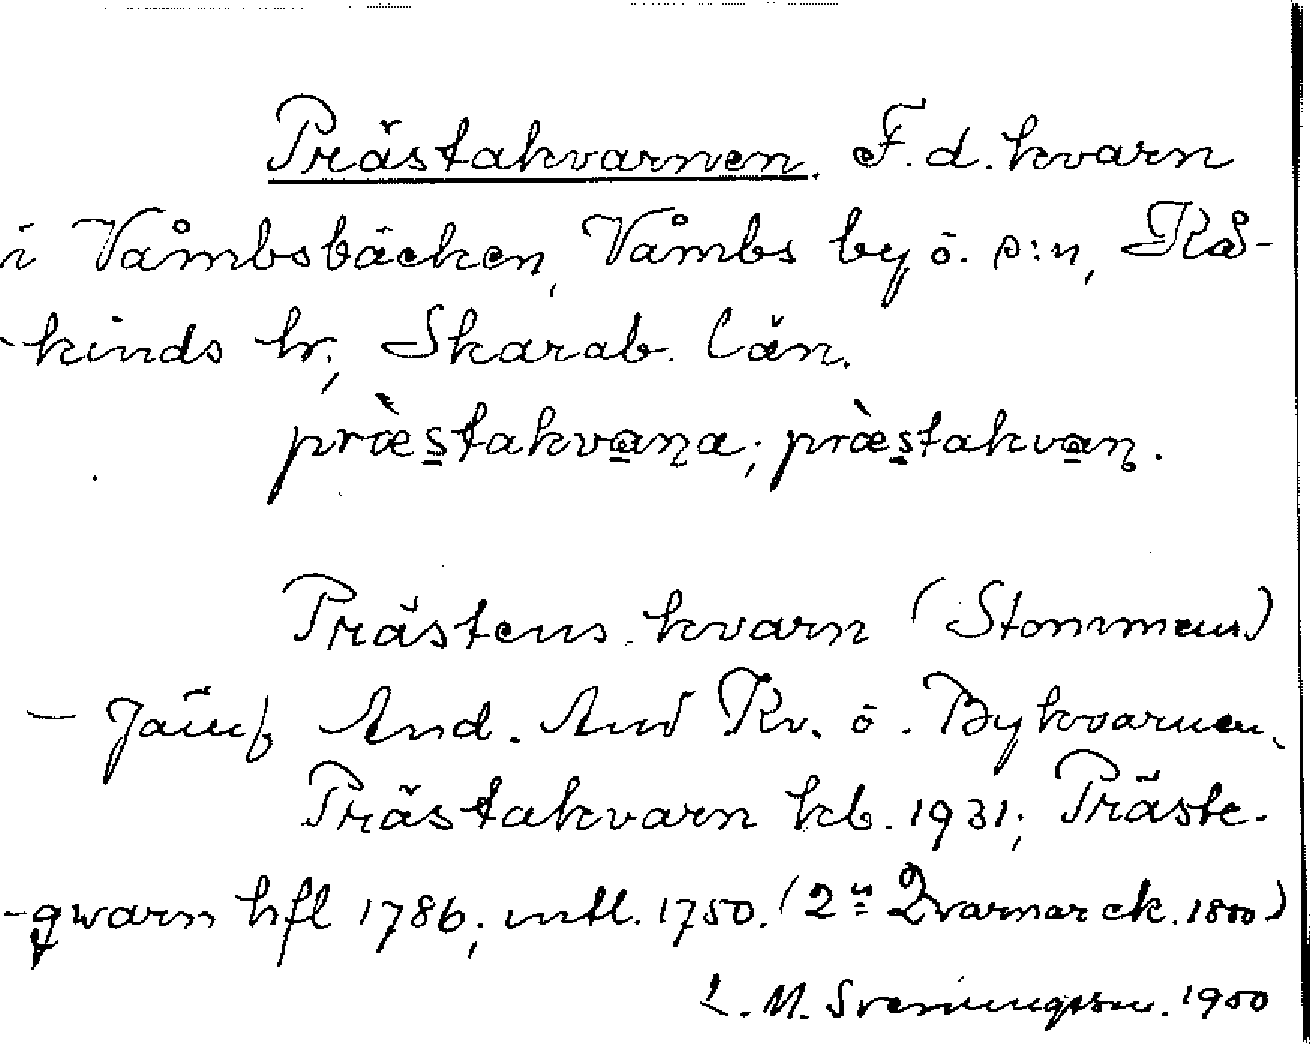 Prästakvarnen. F. d. kvarn
i Våmbsbäcken, Våmbs by o. s:n, Kå-
kinds hr, Skarab. län.
præ̀stakvaṇa; præ̀stakvaṇ.
Prästens kvarn (Stommens)
- Jämf And. And Kv. o. Bykvarnen.
Prästakvarn kb. 1931; Präste-
-qwarn hfl 1786; mtl. 1750. (2:ne Qvarnar ek. 1800)
L. M. Svenungsson. 1950